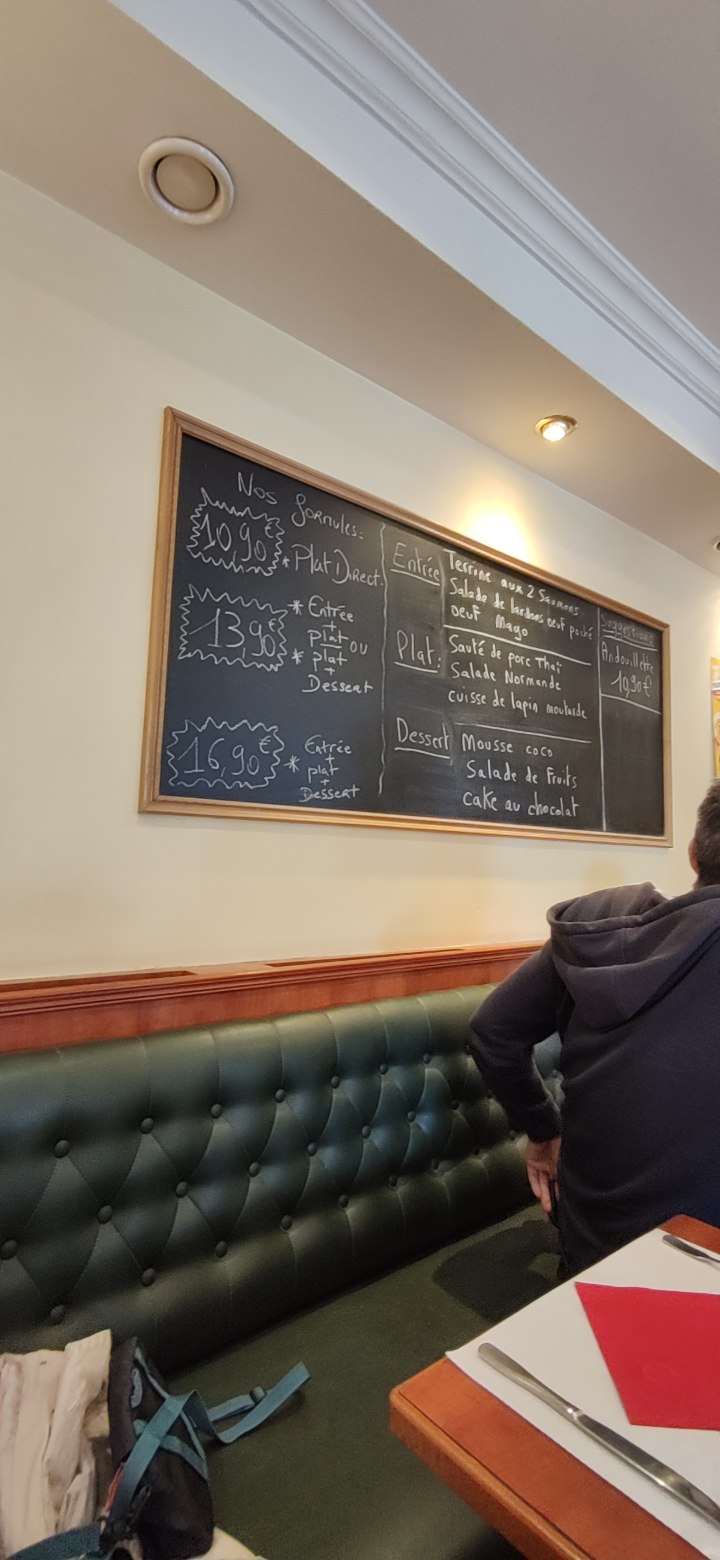 Nos formules:
10,90€
* Plat Direct.
13,90€
* Entrée
+
plat ou
* plat
+
Dessert
16,90€
* Entrée
+
plat
+
Dessert
Entrée
Terrine aux 2 Saumons
Salade de lardons oeuf poché
oeuf Mago
Plat:
Sauté de porc Thaï
Salade Normande
cuisse de lapin moutarde
Dessert
Mousse coco
Salade de Fruits
cake au chocolat
Suggestions
Andouillette
10,90€